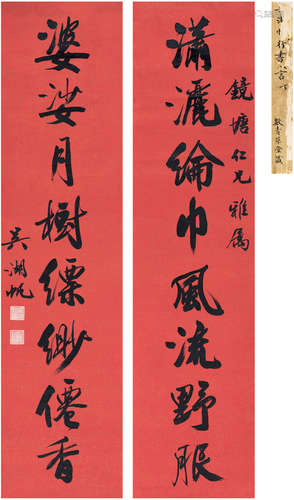 瀟灑綸巾風流野服
鏡塘仁兄雅屬
婆娑月樹縹緲僊香
吳湖帆